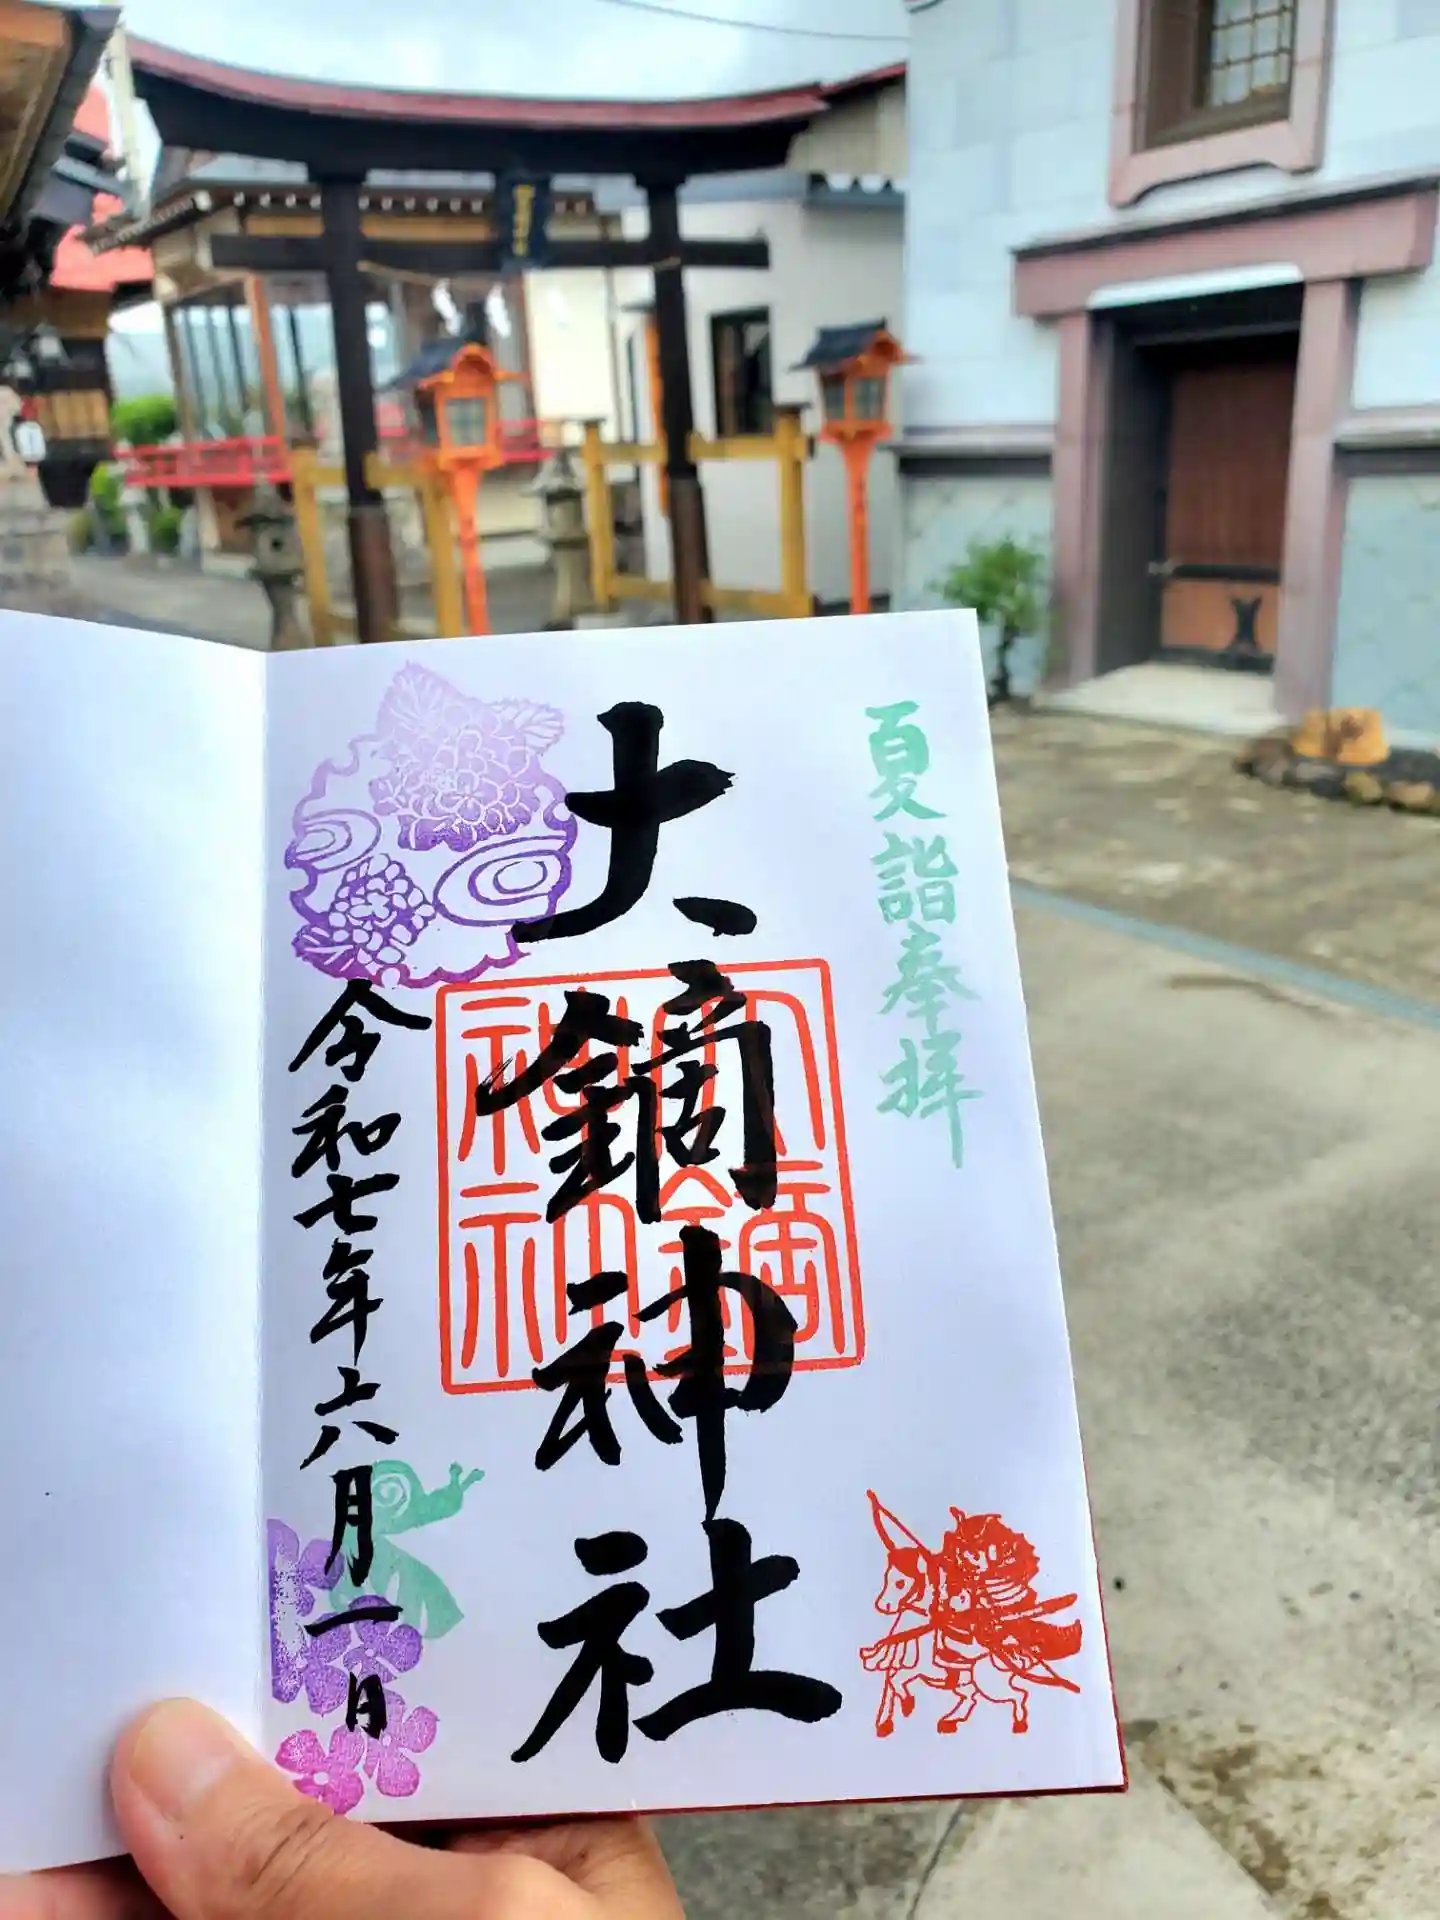 夏詣奉拝
大鏑神社
大鏑
神社
令和七年六月一日